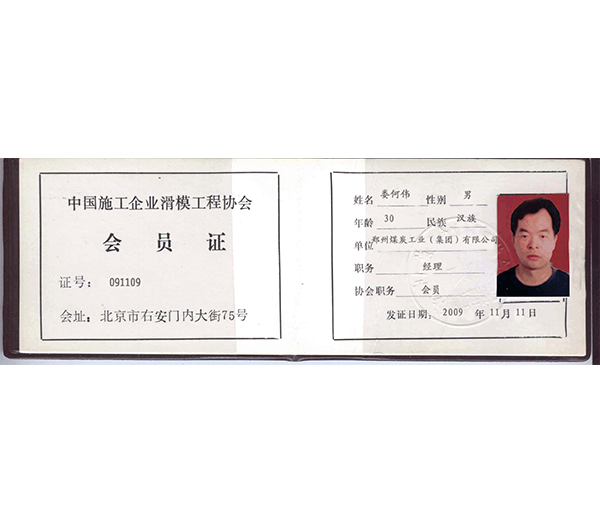 中国施工企业滑模工程协会
会员证
证号：091109
会址：北京市右安门内大街75号
姓名 娄何伟 性别 男
年龄 30 民族 汉族
单位 郑州煤炭工业（集团）有限公司
职务 经理
协会职务 会员
发证日期：2009 年 11月 11日